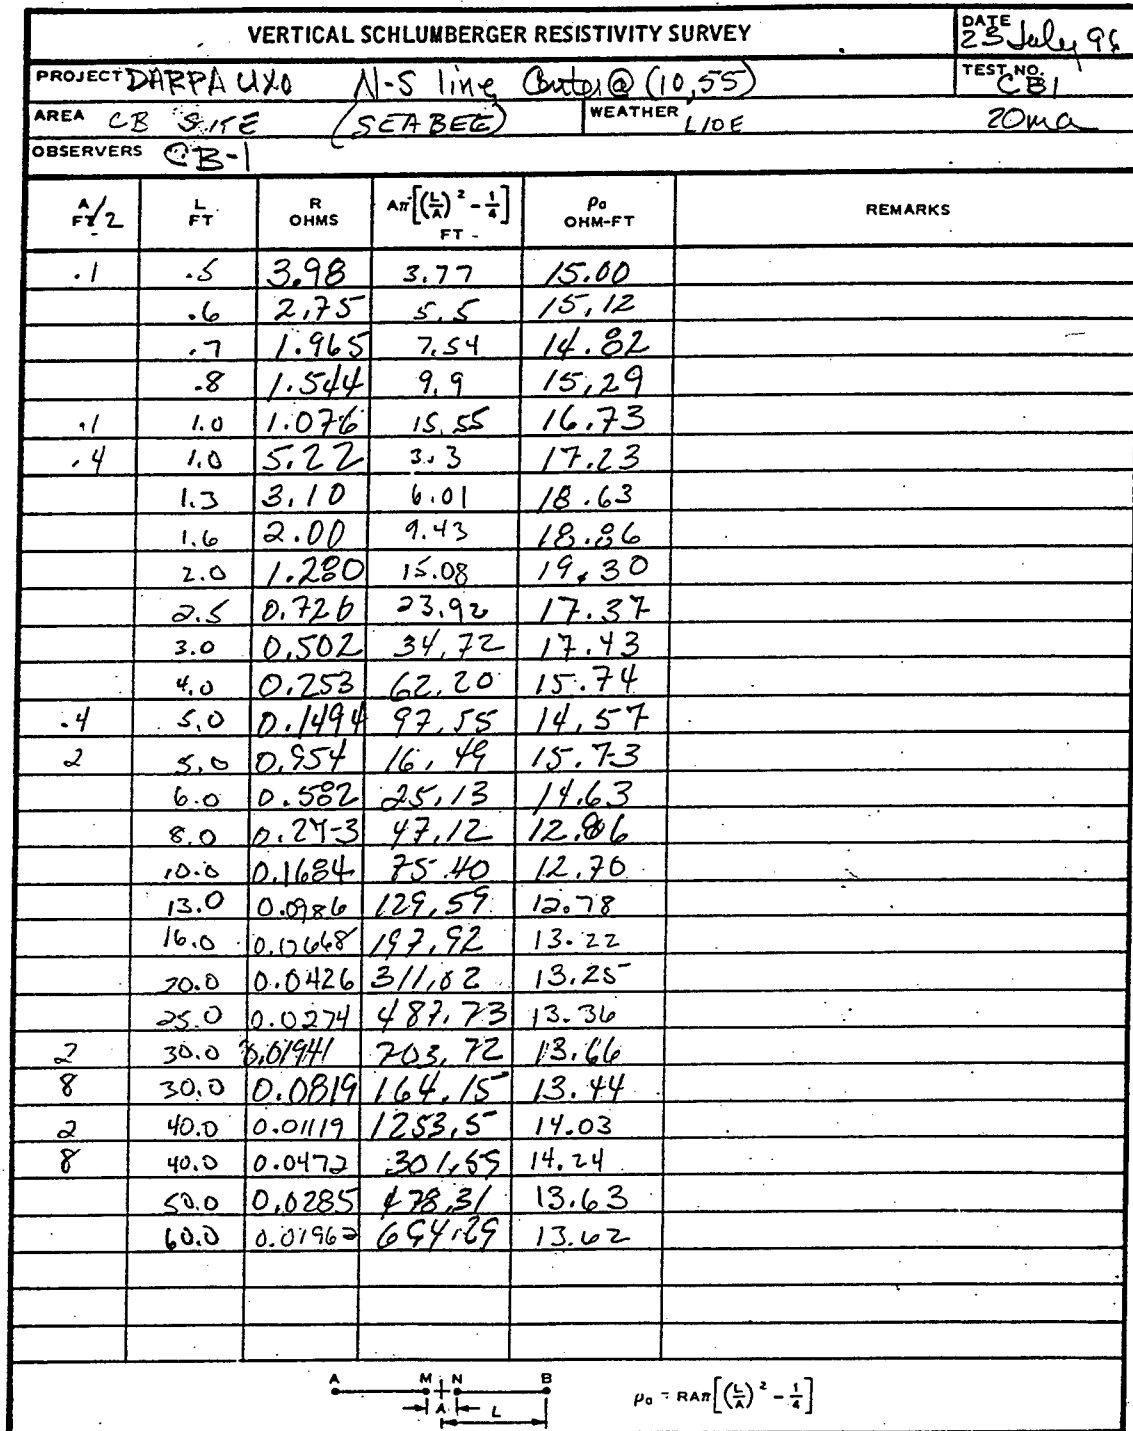 VERTICAL SCHLUMBERGER RESISTIVITY SURVEY
DATE 23 July 96
PROJECT DARPA UXO N-S line Center@ (10,55)
TEST NO. CB1
AREA CB SITE (SEABEE) WEATHER 20ma
OBSERVERS CB-1
A/2 FT L FT R OHMS Aπ[(L/A)² - 1/4] FT ρa OHM-FT REMARKS
.1 .5 3.98 3.77 15.00
.6 2.75 5.5 15.12
.7 1.965 7.54 14.82
.8 1.544 9.9 15.29
.1 1.0 1.076 15.55 16.73
.4 1.0 5.22 3.3 17.23
1.3 3.10 6.01 18.63
1.6 2.00 9.43 18.86
2.0 1.280 15.08 19.30
2.5 0.726 23.92 17.37
3.0 0.502 34.72 17.43
4.0 0.253 62.20 15.74
.4 5.0 0.1494 97.55 14.57
2 5.0 0.954 16.49 15.73
6.0 0.582 25.13 14.63
8.0 0.273 47.12 12.86
10.0 0.1684 75.40 12.70
13.0 0.0986 129.59 12.78
16.0 0.0668 197.92 13.22
20.0 0.0426 311.02 13.25
25.0 0.0274 487.73 13.36
2 30.0 0.01941 703.72 13.66
8 30.0 0.0819 164.15 13.44
2 40.0 0.01119 1253.5 14.03
8 40.0 0.0472 301.59 14.24
50.0 0.0285 478.31 13.63
60.0 0.01962 694.29 13.62
A M N B
A L
ρa = RAπ[(L/A)² - 1/4]